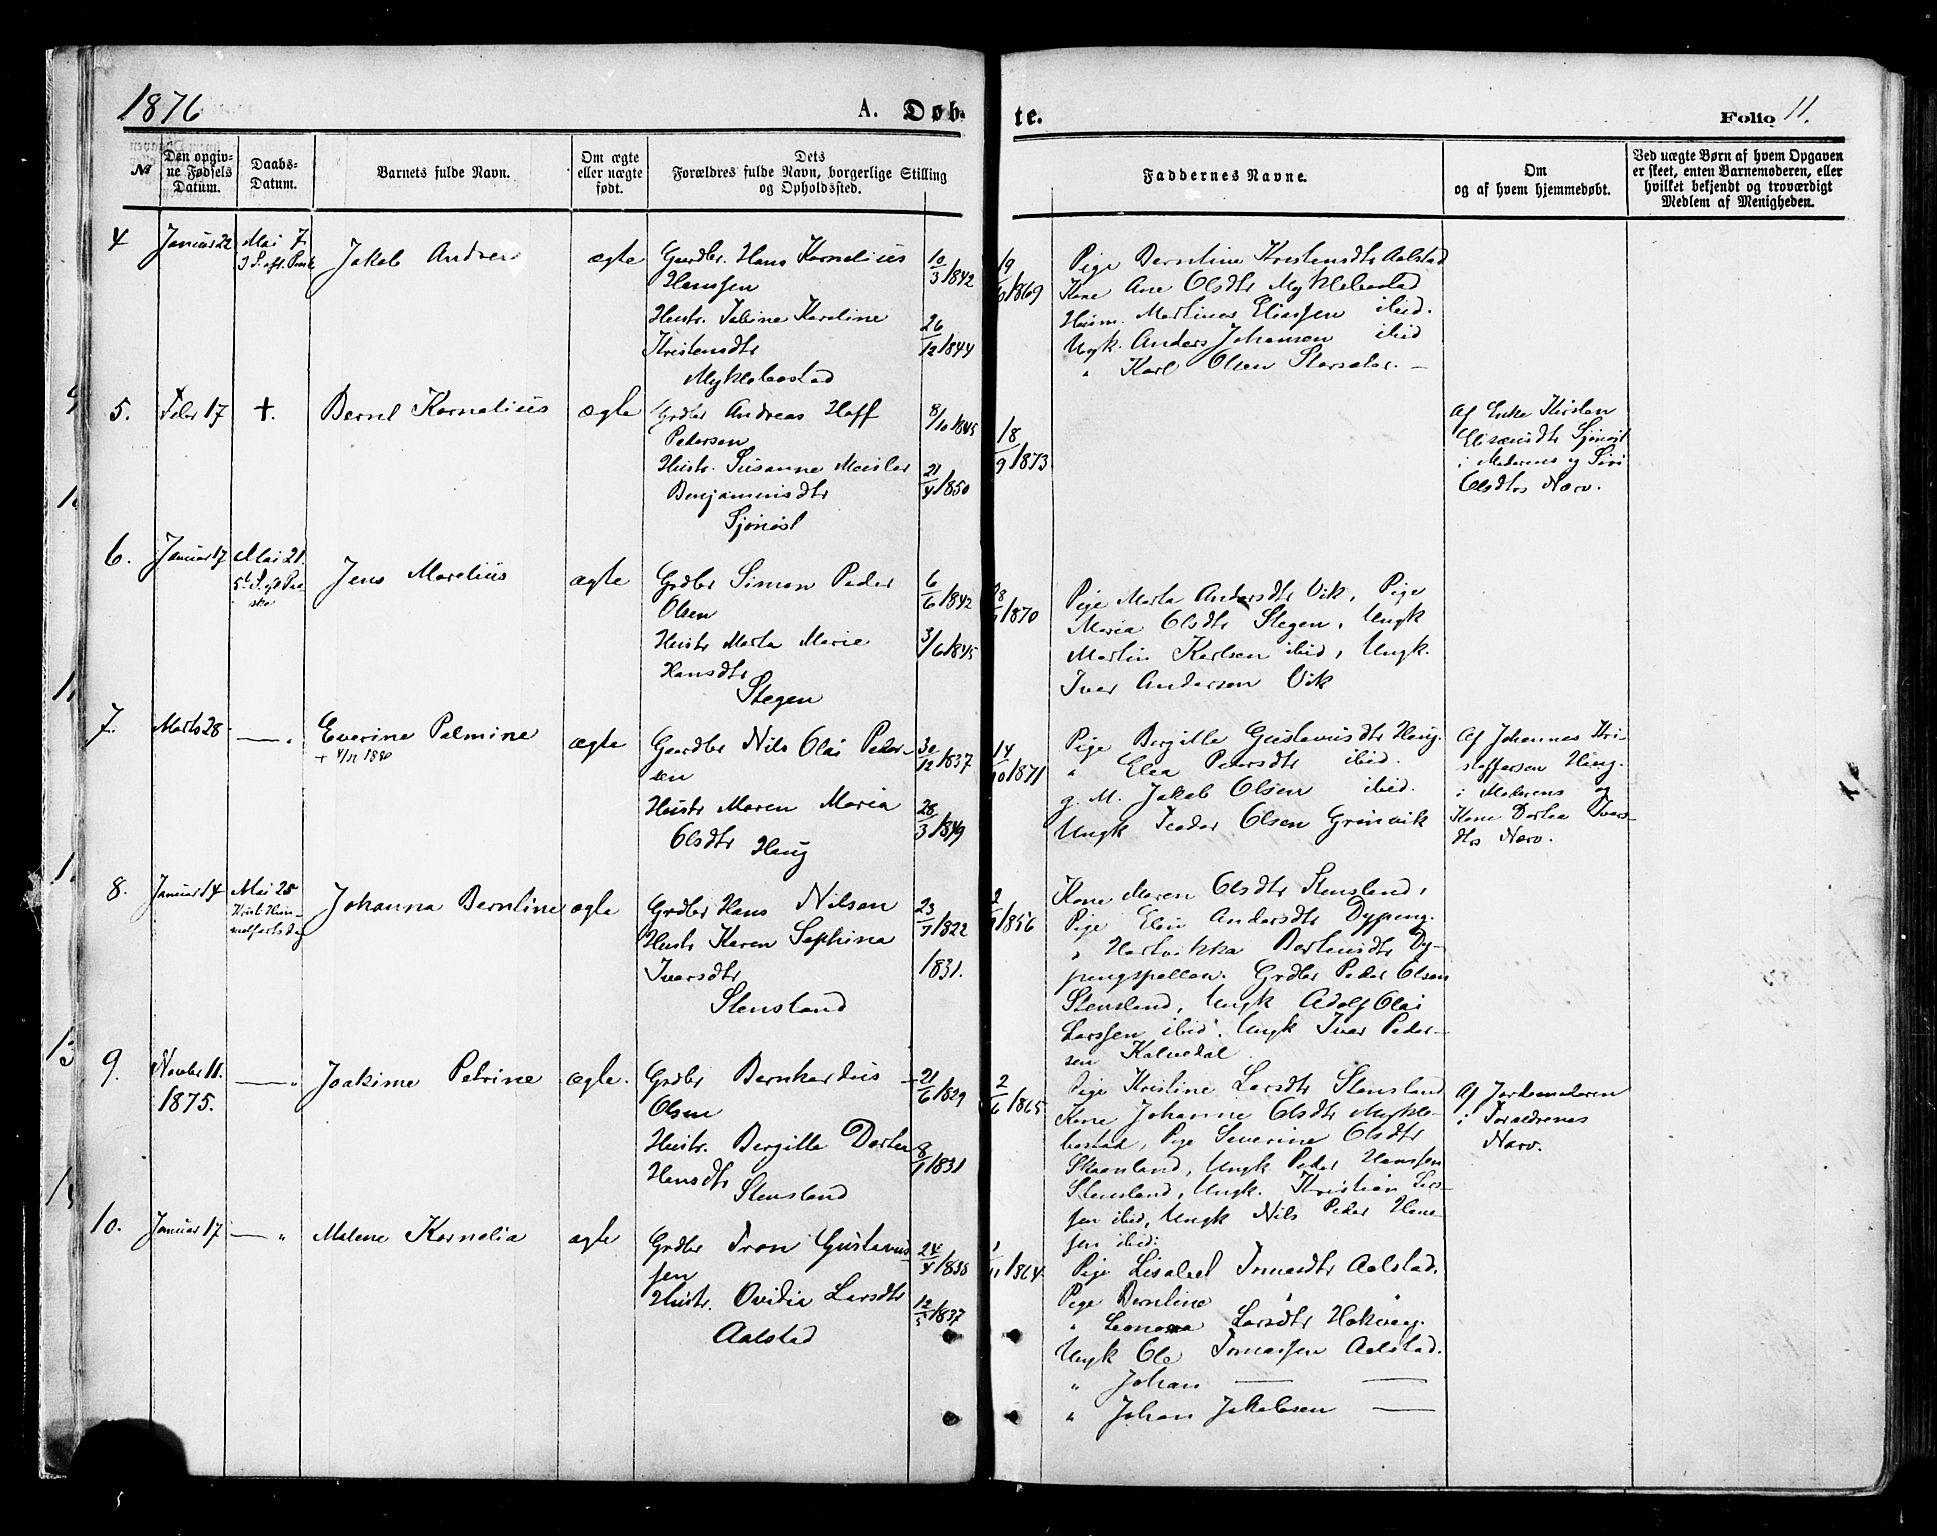 1876
A. Døb-
te.
Folio 11.
№
Den opgiv-
ne Fødsels
Datum.
Daabs-
Datum.
Barnets fulde Navn.
Om ægte
eller uægte
født.
Dets
Forældres fulde Navn, borgerlige Stilling
og Opholdssted.
Faddernes Navne.
Om
og af hvem hjemmedøbt.
Ved uægte Børn af hvem Opgaven
er skeet, enten Barnemoderen, eller
hvilket bekjendt og troværdigt
Medlem af Menigheden.
4
Januar 22
Mai 7.
3 S. eft. Pask
Jakob Andreas
ægte
Gaardbr. Hans Kornelius
Hanssen
Hustr. Jabine Karoline
Kristensdtr
Myklebostad
10/3 1842
26/12 1844
19
1869
Pige Berntine Kristensdtr Aalstad
Kone Ane Olsdtr Myklebostad
Husm. Martinus Eliassen ibid.
Ungk. Anders Johansen ibid
" Karl Olsen Storsater. –
5.
Febr 17
+.
Bernt Kornelius
ægte
Grdbr Andreas Hoff
Pedersen
Hustr. Susanne
Benjaminsdtr
Sjønøst
8/10 1845
21/4 1850
18/9 1873
Af Enke Kirsten
Elisæusdtr Sjønøst
i Moderens og Siri
Olsdtrs Nærv.
6.
Januar 17
Mai 21.
5t S. eft Paa-
ske
Jens Marelius
ægte
Grdbr Simon Peder
Olsen
Hustr Marta Marie
Hansdtr
Stegen
6/6 1842
3/6 1845
1870
Pige Marta Andersdtr Vik, Pige
Maria Olsdtr Stegen, Ungk
Martin Karlsen ibid, Ungk.
Iver Andersen Vik
7.
Marts 28
— "
Everine Palmine
+ 4/11 1880
ægte
Gaardbr Nils Olai Peder-
sen
Hustr Maren Maria
Olsdtr Haug
30/12 1837
28/3 1849
14/10 1871
Pige Birgitte Gustavusdtr Haug.
" Elea Pedersdtr ibid.
g. M. Jakob Olsen ibid.
Ungk Teodor Olsen Grønvik
Af Johannes Kri-
stoffersen Haug.
i Moderens og
Kone Dortea Ivers-
dtrs Nærv.
8.
Januar 14
Mai 25
Krist. Him-
melfartsdag
Johanna Berntine
ægte
Grdbr Hans Nilsen
Hustr Karen Sophina
Iversdtr
Stensland
23/7 1822
1831.
1856
Kone Maren Olsdtr Stensland,
Pige Elen Andersdtr Dypeng.
" Hartvikka Bortensdtr Dy-
pengspollen. Grdbr Peder Olsen
Stensland, Ungk Adolf Olai
Larssen ibid. Ungk Iver Peder-
sen Kalvedal
9.
Novber 11.
1875.
— "
Joakime Petrine
ægte.
Grdbr Bernhardus
Olsen
Hustr. Bergitte Dortea
Hansdtr
Stensland
21/6 1829
8/1 1831
2/6 1865
Pige Kristine Larsdtr Stensland
Kone Johanne Olsdtr Mykle-
bostad, Pige Severine Olsdtr
Skaanland, Ungk Peder Hanssen
Stensland, Ungk. Kristian Lars-
sen ibid, Ungk Nils Peder Hans-
sen ibid:
Af Jordemoderen
i Foraldrenes
Nærv.
10.
Januar 17
— "
Malene Kornelia
ægte
Grdbr Tron Gustavus-
sen
Hustr. Ovidia Larsdtr
Aalstad
24/4 1838
12/5 1837
1864
Pige Lisabet Tomasdtr Aalstad.
Pige Berntine " "
" Leonora Larsdtr Hakvaag.
Ungk Ole Tomassen Aalstad.
" Johan — —
" Johan Jakobsen —